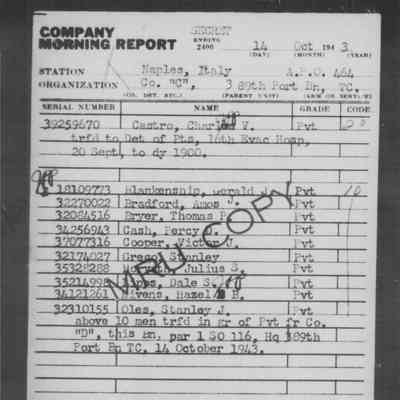 COMPANY
MORNING REPORT
SECRET
ENDING
2400
14 Oct 1943
(DAY) (MONTH) (YEAR)
STATION Naples, Italy A.P.O. 464
ORGANIZATION Co. "C", 389th Port Bn, TC.
(CO. DET. ETC.) (PARENT UNIT) (ARM OR SERVICE)
SERIAL NUMBER NAME GRADE CODE
39259670 Castro, V. Pvt
trfd to Det of Pts, 16th Evac Hosp,
20 Sept, to dy 1900.
18109773 Blankenship, Gerald J. Pvt
32270022 Bradford, Amos J. Pvt
32084516 Bryer, Thomas P. Pvt
34256943 Cash, Percy Pvt
37077316 Cooper, Victor J. Pvt
32174027 Greco, Stanley Pvt
35328288 Julius S. Pvt
Dale Pvt
34121261 Hazel B. Pvt
32310155 Oles, Stanley J. Pvt
above 10 men trfd in gr of Pvt fr Co.
"D", this Bn, par 1 SO 116, Hq 389th
Port Bn TC. 14 October 1943.
MRU COPY